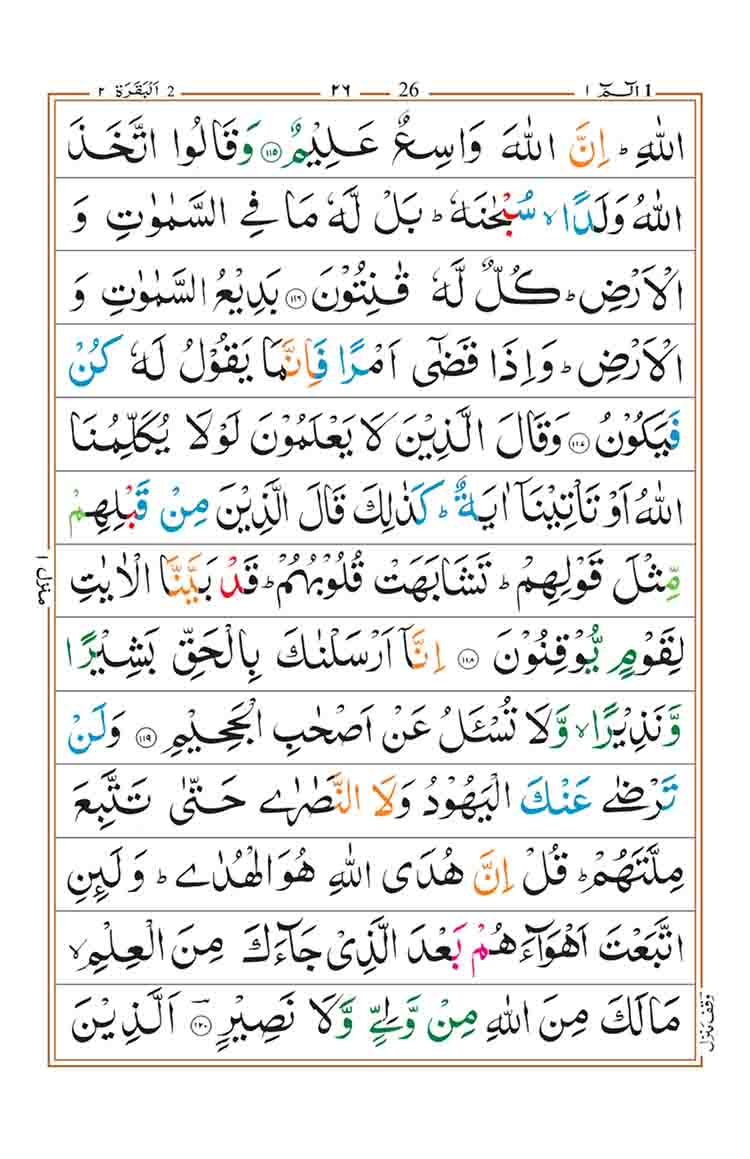 1 الٓـمّٓ ١ 26 ٢٦ 2 اَلْبَقَرَة ٢
اللّٰهِ ؕ اِنَّ اللّٰهَ وَاسِعٌ عَلِيْمٌ ۝۱۱۵ وَقَالُوا اتَّخَذَ
اللّٰهُ وَلَدًا ۙ سُبْحٰنَهٗ ؕ بَلْ لَّهٗ مَا فِى السَّمٰوٰتِ وَ
الْاَرْضِ ؕ كُلٌّ لَّهٗ قٰنِتُوْنَ ۝۱۱۶ بَدِيْعُ السَّمٰوٰتِ وَ
الْاَرْضِ ؕ وَاِذَا قَضٰٓى اَمْرًا فَاِنَّمَا يَقُوْلُ لَهٗ كُنْ
فَيَكُوْنُ ۝۱۱۷ وَقَالَ الَّذِيْنَ لَا يَعْلَمُوْنَ لَوْلَا يُكَلِّمُنَا
اللّٰهُ اَوْ تَاْتِيْنَآ اٰيَةٌ ؕ كَذٰلِكَ قَالَ الَّذِيْنَ مِنْ قَبْلِهِمْ
مِّثْلَ قَوْلِهِمْ ؕ تَشَابَهَتْ قُلُوْبُهُمْ ؕ قَدْ بَيَّنَّا الْاٰيٰتِ
لِقَوْمٍ يُّوْقِنُوْنَ ۝۱۱۸ اِنَّآ اَرْسَلْنٰكَ بِالْحَقِّ بَشِيْرًا
وَّنَذِيْرًا ۙ وَّلَا تُسْـَٔلُ عَنْ اَصْحٰبِ الْجَحِيْمِ ۝۱۱۹ وَلَنْ
تَرْضٰى عَنْكَ الْيَهُوْدُ وَلَا النَّصٰرٰى حَتّٰى تَتَّبِعَ
مِلَّتَهُمْ ؕ قُلْ اِنَّ هُدَى اللّٰهِ هُوَ الْهُدٰى ؕ وَلَئِنِ
اتَّبَعْتَ اَهْوَآءَهُمْ بَعْدَ الَّذِىْ جَآءَكَ مِنَ الْعِلْمِ ۙ
مَا لَكَ مِنَ اللّٰهِ مِنْ وَّلِىٍّ وَّلَا نَصِيْرٍ ۝۱۲۰ اَلَّذِيْنَ
منزل ١
وقف منزل